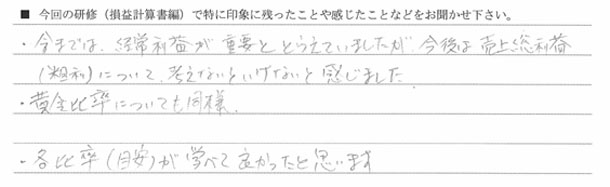 ■ 今回の研修(損益計算書編)で特に印象に残ったことや感じたことなどをお聞かせ下さい。
・今までは、経常利益が重要ととらえていましたが、今後は売上総利益
(粗利)について、考えないといけないと感じました
・黄金比率についても同様、
・各比率(目安)が学べて良かったと思います